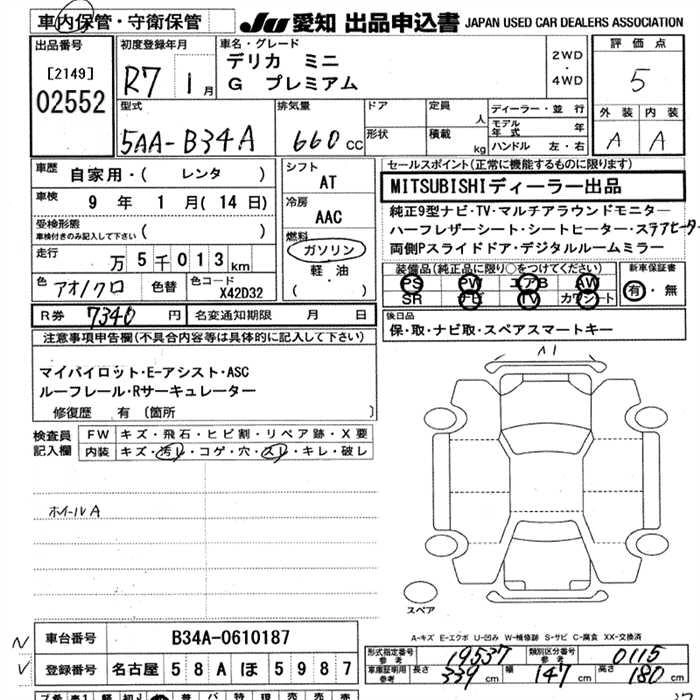 車内保管・守衛保管
JU 愛知 出品申込書 JAPAN USED CAR DEALERS ASSOCIATION
出品番号
[2149]
02552
初度登録年月
R7 1月
車名・グレード
デリカ ミニ
G プレミアム
2WD
・
4WD
評価点
5
外装 内装
A A
型式
5AA-B34A
排気量
660 CC
ドア
形状
定員 人
積載 kg
ディーラー・並行
モデル年式 年
ハンドル 左・右
車歴 自家用・( レンタ )
車検 9 年 1 月(14日)
受検形態
車検付きのみ記入して下さい ( )
走行 万 5 千 013 km
色 アオ/クロ 色替 色コード X42D32
シフト
AT
冷房
AAC
燃料
ガソリン
軽・油
( )
セールスポイント(正常に機能するものに限ります)
MITSUBISHIディーラー出品
純正9型ナビ・TV・マルチアラウンドモニター
ハーフレザーシート・シートヒーター・ステアヒーター
両側Pスライドドア・デジタルルームミラー
装備品(純正品に限り○をつけてください)
PS PW エアB AW
SR ナビ TV カワシート
新車保証書
有・無
R券 7340 円 名変通知期限 月 日
後日品
保・取・ナビ取・スペアスマートキー
注意事項申告欄(不具合内容等は具体的に記入して下さい)
マイパイロット・E-アシスト・ASC
ルーフレール・Rサーキュレーター
修復歴 有〔箇所 〕
検査員記入欄
FW キズ・飛石・ヒビ割・リペア跡・X要
内装 キズ・汚レ・コゲ・穴・スレ・キレ・破レ
ホイールA
A1
スペア
A-キズ E-エクボ U-凹み W-補修跡 S-サビ C-腐食 XX-交換済
車台番号 B34A-0610187
登録番号 名古屋 58A ほ 5987
形式指定番号 参考 19537 類別区分番号 参考 0115
車庫証明用 参考 長さ 339 cm 幅 147 cm 高さ 180 cm